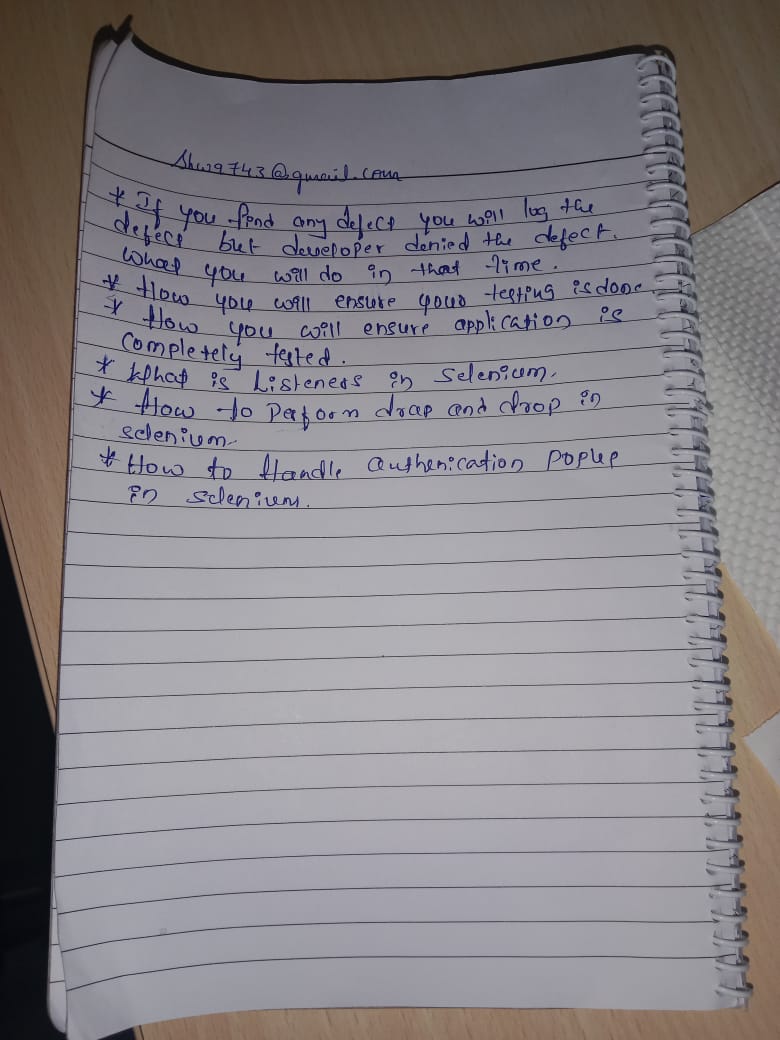 Shwa9743@gmail.com
* If you find any defect you will log the
defect but developer denied the defect.
What you will do in that time.
* How you will ensure your testing is done
* How you will ensure application is
completely tested.
* What is Listeness in Selenium.
* How to Perform drap and drop in
selenium.
* How to Handle authenication Popup
in selenium.